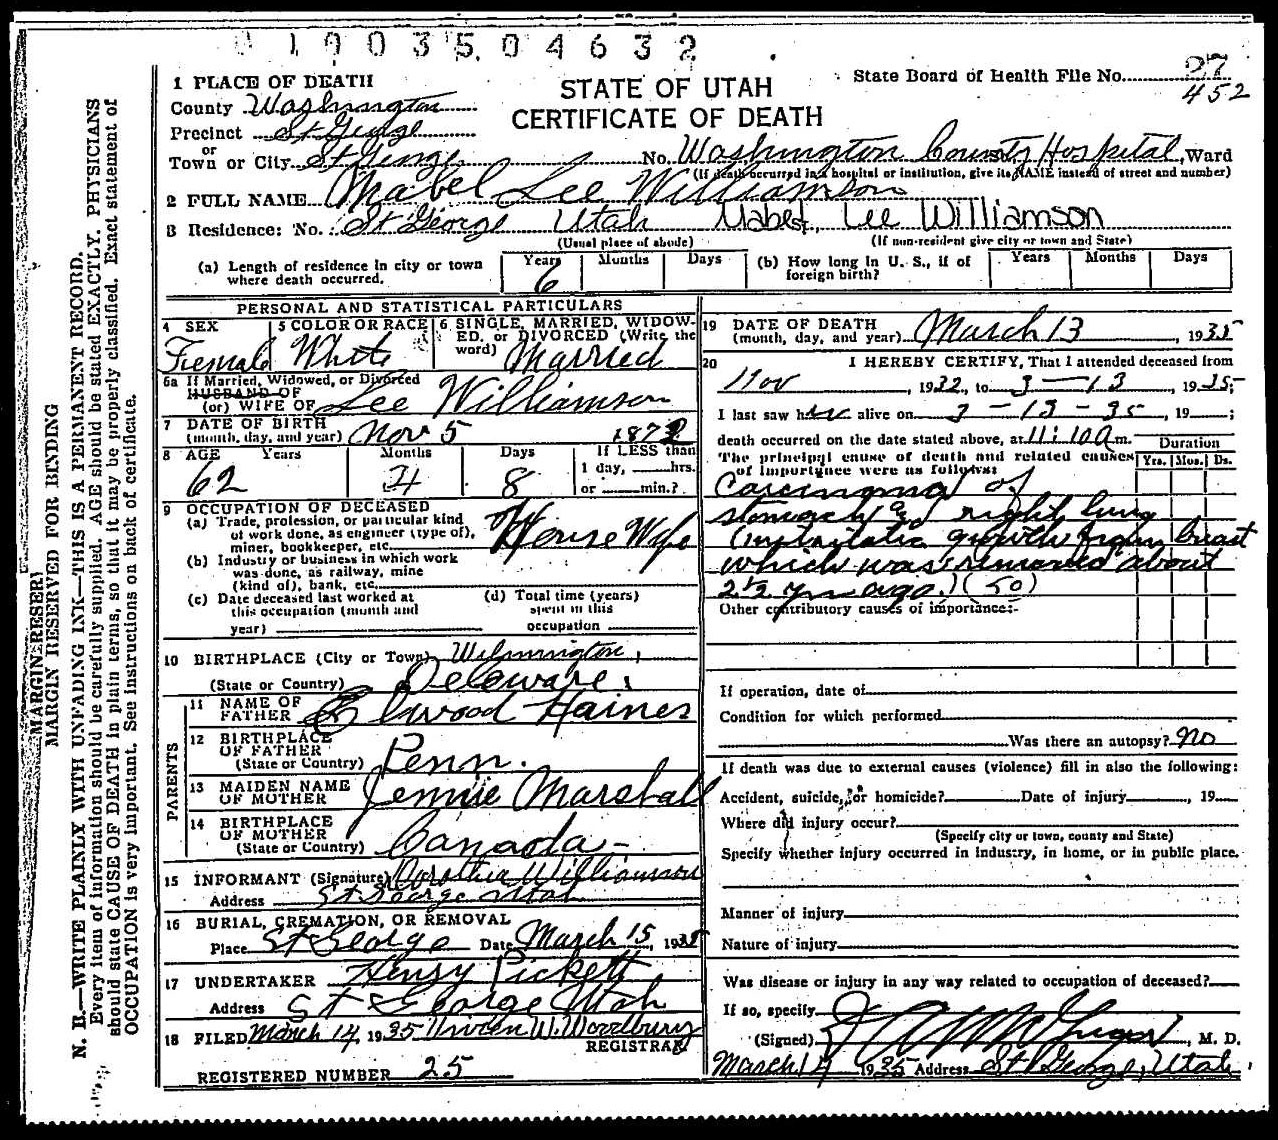 0 1 9 0 3 5 0 4 6 3 2
STATE OF UTAH
CERTIFICATE OF DEATH
State Board of Health File No. 27
452
1 PLACE OF DEATH
County Washington
Precinct St George
or
Town or City St George No. Washington County Hospital, Ward
(If death occurred in a hospital or institution, give its NAME instead of street and number)
2 FULL NAME Mabel Lee Williamson
3 Residence: No. St George Utah Mabel Lee Williamson
(Usual place of abode) (If non-resident give city or town and State)
(a) Length of residence in city or town where death occurred. Years 6 Months Days
(b) How long in U. S., if of foreign birth? Years Months Days
PERSONAL AND STATISTICAL PARTICULARS
4 SEX Female
5 COLOR OR RACE White
6 SINGLE, MARRIED, WIDOWED, or DIVORCED (Write the word) Married
6a If Married, Widowed, or Divorced
HUSBAND OF
(or) WIFE OF Lee Williamson
7 DATE OF BIRTH
(month, day, and year) Nov 5 1872
8 AGE Years 62 Months 4 Days 8 If LESS than 1 day, hrs. or min.?
9 OCCUPATION OF DECEASED
(a) Trade, profession, or particular kind of work done, as engineer (type of), miner, bookkeeper, etc. House Wife
(b) Industry or business in which work was done, as railway, mine (kind of), bank, etc.
(c) Date deceased last worked at this occupation (month and year)
(d) Total time (years) spent in this occupation
10 BIRTHPLACE (City or Town) Wilmington,
(State or Country) Deleware.
PARENTS
11 NAME OF FATHER Elwood Haines
12 BIRTHPLACE OF FATHER
(State or Country) Penn.
13 MAIDEN NAME OF MOTHER Jennie Marshall
14 BIRTHPLACE OF MOTHER
(State or Country) Canada
15 INFORMANT (Signature) Dorothea Williamson
Address St George Utah
16 BURIAL, CREMATION, OR REMOVAL
Place St George Date March 15, 1935
17 UNDERTAKER Henry Pickett
Address St George Utah
18 FILED March 14, 1935 Vivian W. Woodbury
REGISTRAR
REGISTERED NUMBER 25
19 DATE OF DEATH
(month, day, and year) March 13, 1935
20 I HEREBY CERTIFY, That I attended deceased from
Nov, 1932, to 3-13, 1935;
I last saw her alive on 3-13-35, 19;
death occurred on the date stated above, at 11:10 a m.
The principal cause of death and related causes of importance were as follows: Duration Yrs. Mos. Ds.
Carcinoma of
stomach and right lung
growth from breast
which was removed about
2 1/2 yrs ago.) (50)
Other contributory causes of importance:-
If operation, date of
Condition for which performed
Was there an autopsy? no
If death was due to external causes (violence) fill in also the following:
Accident, suicide, or homicide? Date of injury, 19
Where did injury occur?
(Specify city or town, county and State)
Specify whether injury occurred in industry, in home, or in public place.
Manner of injury
Nature of injury
Was disease or injury in any way related to occupation of deceased?
If so, specify
(Signed) M. D.
March 14 1935 Address St George, Utah.
MARGIN RESER
MARGIN RESERVED FOR BINDING
N. B.—WRITE PLAINLY WITH UNFADING INK—THIS IS A PERMANENT RECORD.
Every item of information should be carefully supplied. AGE should be stated EXACTLY. PHYSICIANS
should state CAUSE OF DEATH in plain terms, so that it may be properly classified. Exact statement of
OCCUPATION is very important. See instructions on back of certificate.